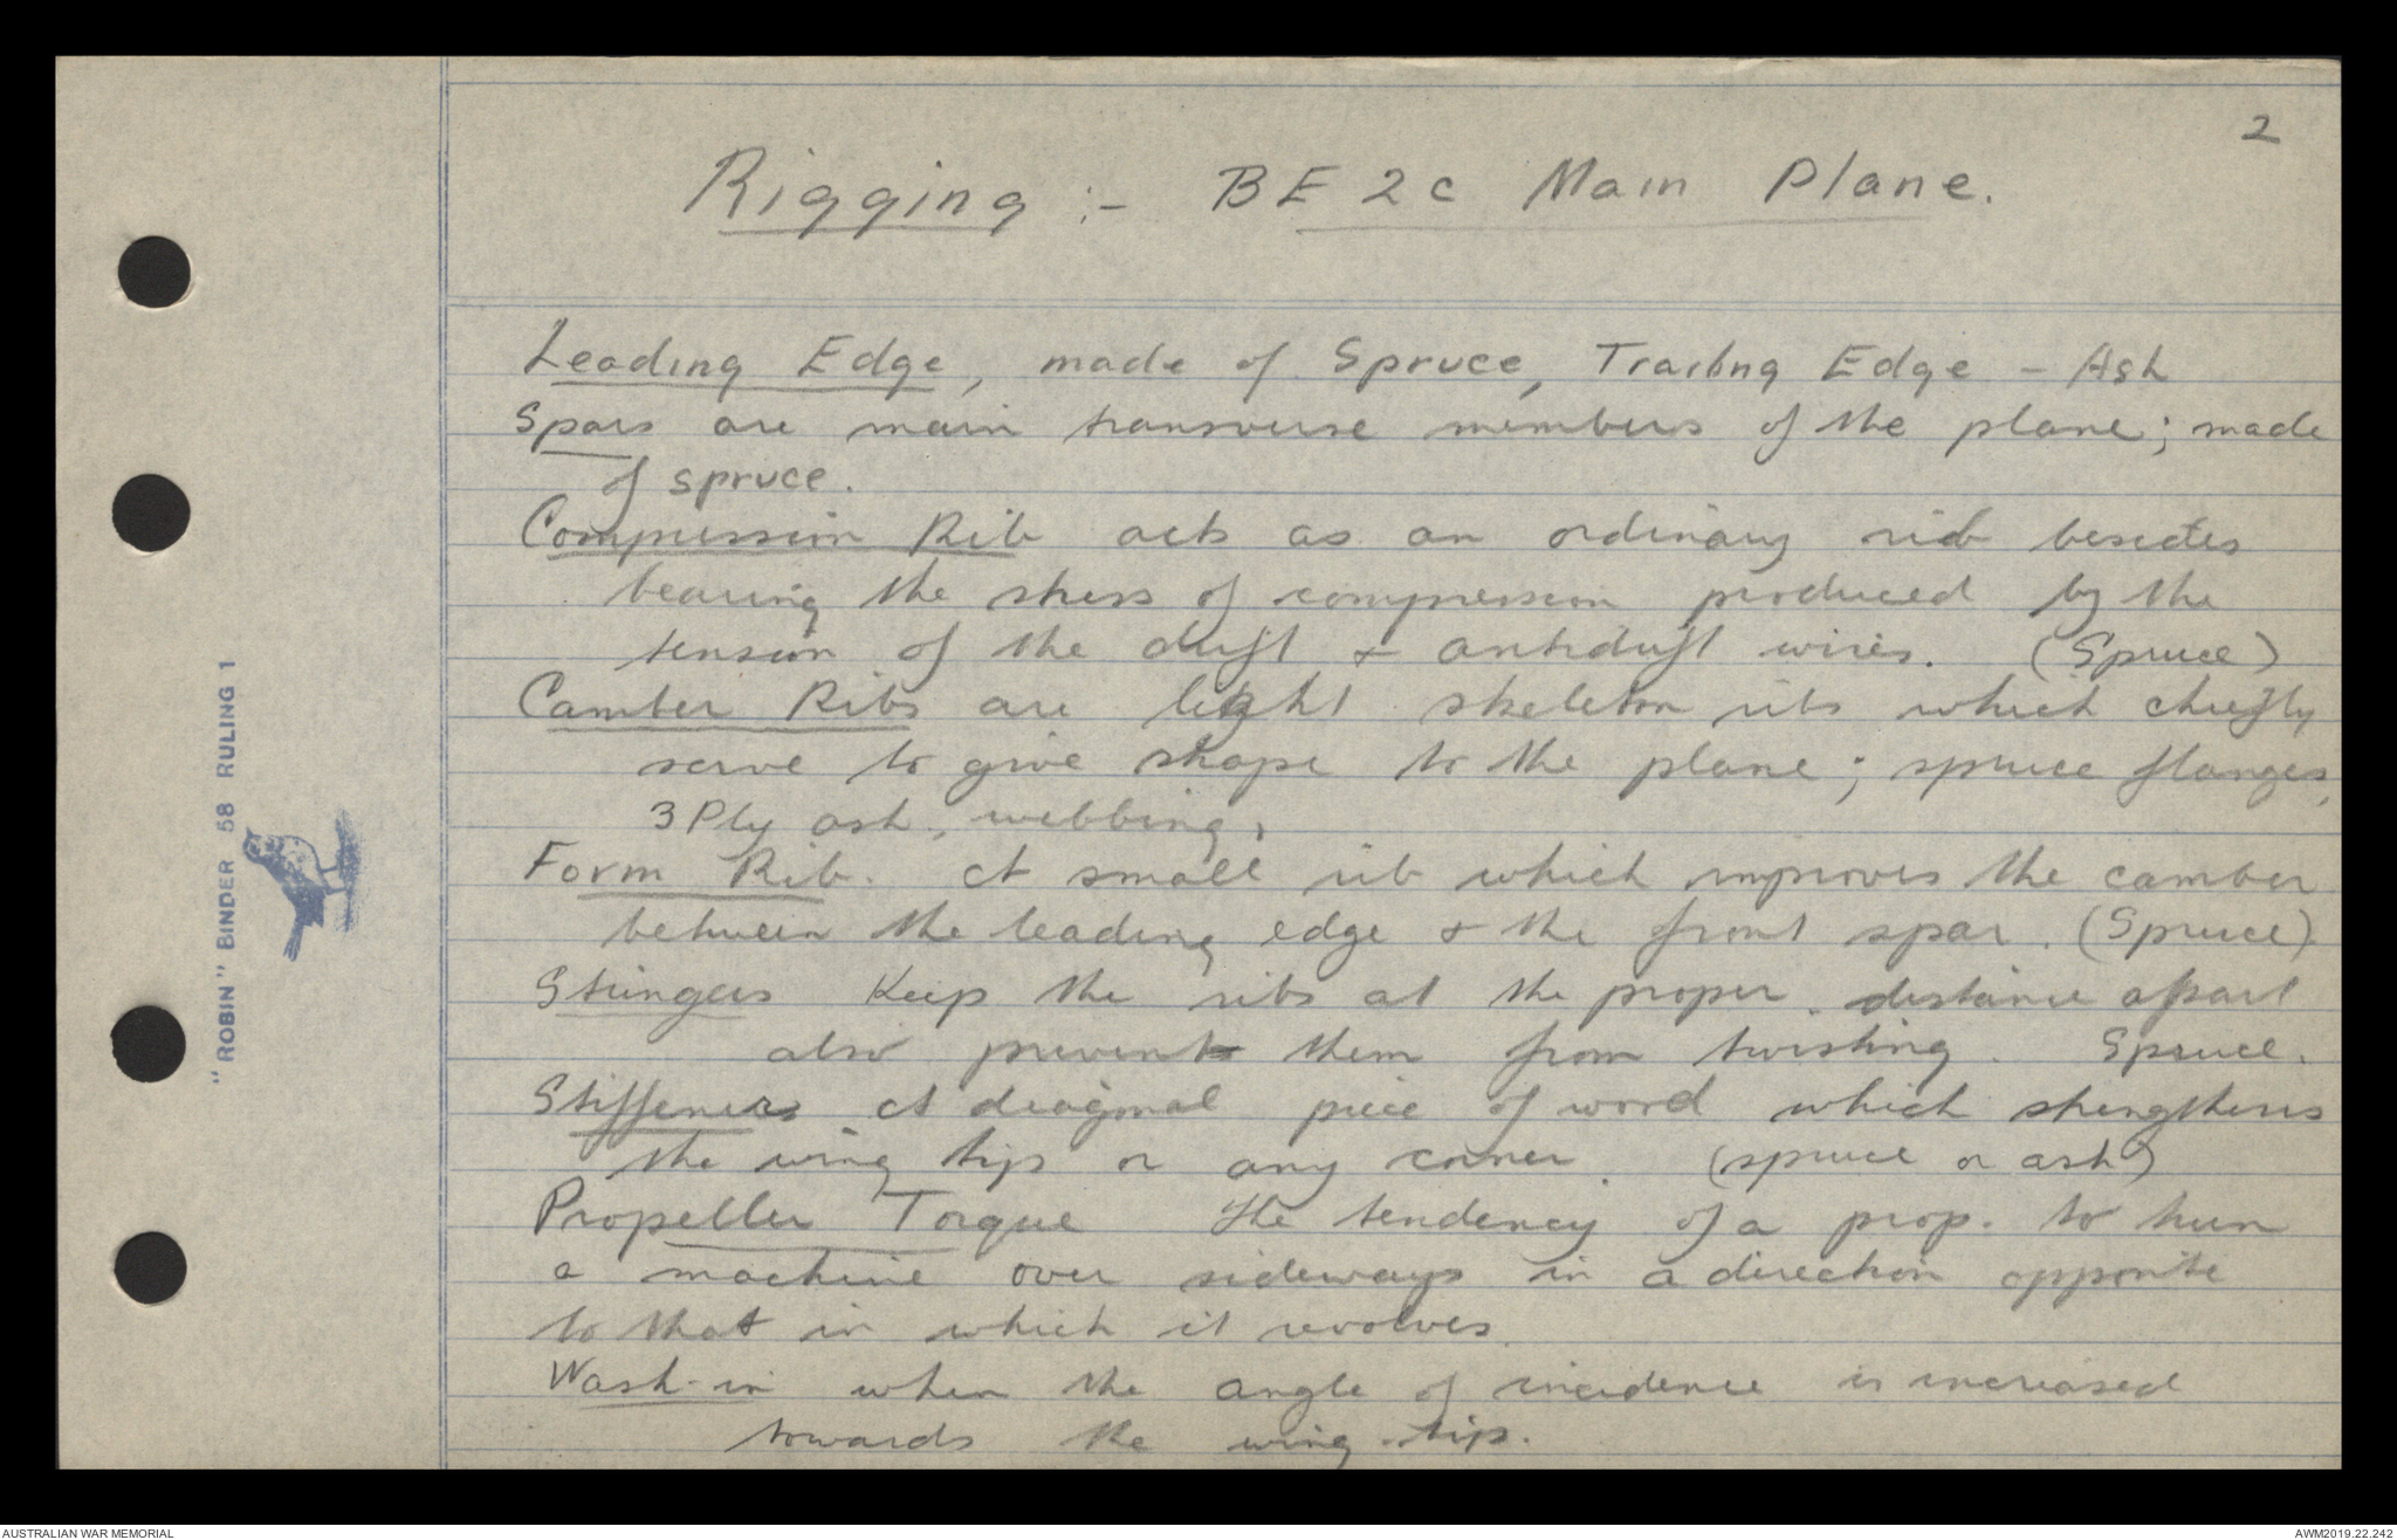 2
Rigging :- BE 2c Main Plane.
Leading Edge, made of Spruce, Trailing Edge - Ash
Spars are main transverse members of the plane; made
of spruce.
Compression Rib acts as an ordinary rib besides
bearing the stress of compression produced by the
tension of the drift & antidrift wires. (Spruce)
Camber Ribs are light skeleton ribs which chiefly
serve to give shape to the plane; spruce flanges,
3 Ply ash, webbing,
Form Rib. A small rib which improves the camber
between the leading edge & the front spar. (Spruce)
Stringers Keep the ribs at the proper distance apart
also prevent them from twisting. Spruce.
Stiffeners A diagonal piece of wood which strengthens
the wing tip or any corner. (spruce or ash)
Propeller Torque The tendency of a prop. to turn
a machine over sideways in a direction opposite
to that in which it revolves
Wash-in when the angle of incidence is increased
towards the wing-tip.
"ROBIN" BINDER 58 RULING 1
AUSTRALIAN WAR MEMORIAL
AWM2019.22.242